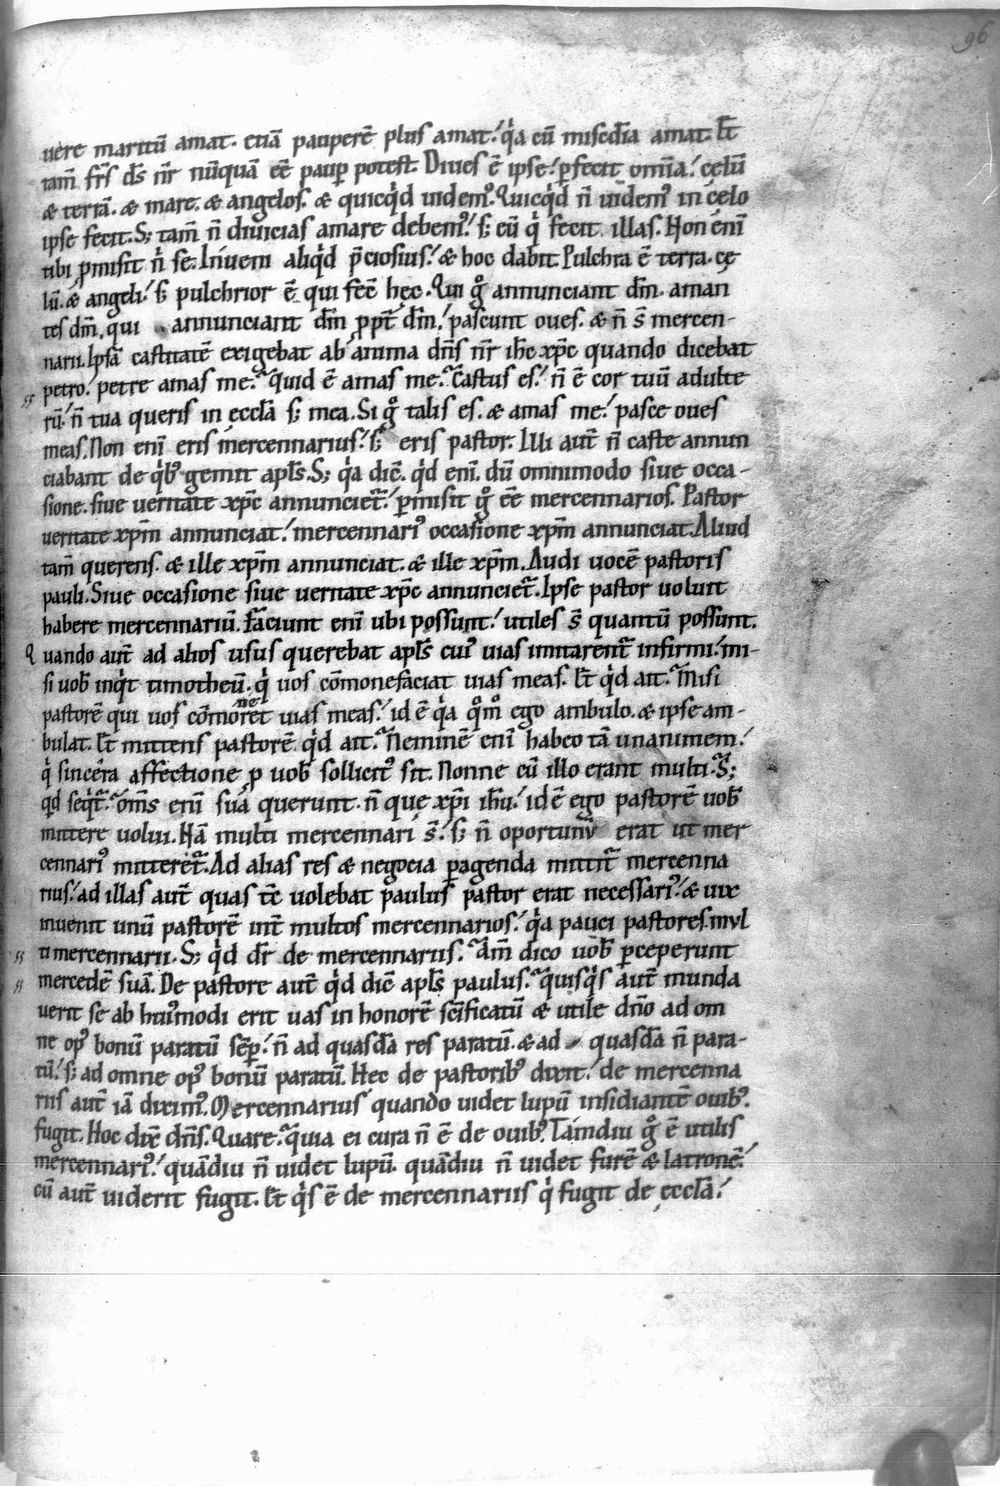 96
uere maritū amat. etiā pauperē plus amat.' q̇a cū misedia amat. Et̄
tam̄ frs̄ ds̄ nr̄ nūquā eē paup potest. Diues ē ipse.' pfecit om̄ia.' celū
& terrā. & mare. & angelos. & quicq̇d uidem᷒. Quicq̇d n̄ uidem᷒ in celo
ipse fecit. S; tam̄ n̄ diuicias amare debem᷒.' s; eū q̇ fecit illas. Non enī
tibi pmisit n̄ se. Inueni aliq̇d p̄ciosius.' & hoc dabit. Pulchra ē terra. ce
lū. & angeli.' s; pulchrior ē qui fec̄ hec. Qui g° annunciant dm̄. aman
tes dm̄. qui annunciant dm̄ ppt̄ dm̄.' pascunt oues. & n̄ s̄ mercen-
narii. Ipsā castitatē exigebat ab anima dn̄s nr̄ ihc̄ xpc̄ quando dicebat
petro.' petre amas me. quid ē amas me. Castus es.' n̄ ē cor tuū adulte
rū.' n̄ tua queris in eccl̄a s; mea. Si g° talis es. & amas me.' pasce oues
meas. Non enī eris mercennarius.' s; eris pastor. Illi aut̄ n̄ caste annun
ciabant de q̇b᷒ gemit apls̄. S; q̇a dic̄. q̇d enī. dū omnimodo siue occa-
sione. siue ueritate xpc̄ annunciet̄.' pmisit g° eē mercennarios. Pastor
ueritate xpm̄ annunciat.' mercennari᷒ occasione xpm̄ annunciat. Aliud
tam̄ querens. & ille xpm̄ annunciat. & ille xpm̄. Audi uocē pastoris
pauli. Siue occasione siue ueritate xpc̄ annunciet̄. Ipse pastor uoluit
habere mercennariū. Faciunt enī ubi possunt.' utiles s̄ quantū possunt.
Quando aut̄ ad alios usus querebat apls̄ cui᷒ uias imitarent̄ infirmi.' mi-
si uob̄ inq̇t timotheū. q̇ uos cōmonefaciat uias meas. Et̄ q̇d ait. Misi
pastorē qui uos cōmoneret uias meas.' id ē q̇a q°m° ego ambulo. & ipse am-
bulat. Et̄ mittens pastorē. q̇d ait. Neminē enī habeo tā unanimem.'
q̇ sincera affectione p uob̄ sollicit᷒ sit. Nonne cū illo erant multi. S;
qd seq̇t̄. om̄s enī sua querunt. n̄ que xpi̅ ihu̅.' id ē ego pastorē uob̄
mittere uolui. Nā multi mercennari s̄.' s; n̄ oportunū erat ut mer
cennari᷒ mitteret̄. Ad alias res & negocia pagenda mittit̄ mercenna
rius.' ad illas aut̄ quas tc̄ uolebat paulus pastor erat necessari᷒.' & uix
inuenit unū pastorē int̄ multos mercennarios.' q̇a pauci pastores. mul
ti mercennarii. S; q̇d dr̄ de mercennariis. Am̄ dico uob̄ pceperunt
mercedē suā. De pastore aut̄ q̇d dic̄ apls̄ paulus. quisq̇s aut̄ munda
uerit se ab hui᷒modi erit uas in honorē scīficatū & utile dn̄o ad om
ne op᷒ bonū paratū sēp.' n̄ ad quasdā res paratū. & ad quasdā n̄ para-
tū.' s; ad omne op᷒ bonū paratū. Hec de pastorib᷒ dixit.' de mercenna
riis aut̄ iā dixim᷒. Mercennarius quando uidet lupū insidiantē ouib᷒.
fugit. Hoc dix̄ dn̄s. Quare. quia ei cura n̄ ē de ouib᷒. Tamdiu g° ē utilis
mercennari᷒.' quādiu n̄ uidet lupū. quādiu n̄ uidet furē & latronē.'
cū aut̄ uiderit fugit. Et̄ q̇s ē de mercennariis q̇ fugit de eccl̄a.'